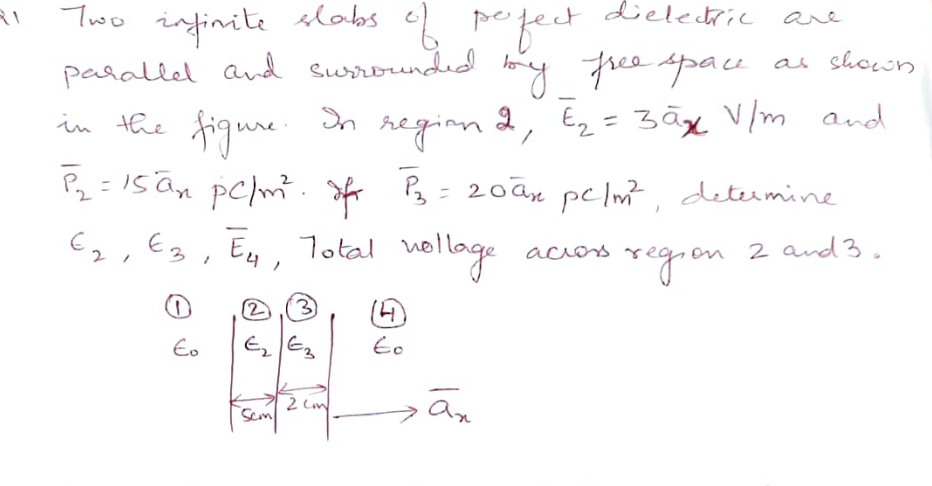 Two infinite slabs of perfect dielectric are
parallel and surrounded by free space as shown
in the figure. In region 2, E̅₂ = 3a̅ₓ V/m and
P̅₂ = 15 a̅ₓ pC/m². If P̅₃ = 20a̅ₓ pC/m², determine
ϵ₂, ϵ₃, E̅₄, Total voltage across region 2 and 3.
① ② ③ ④
ϵ₀ ϵ₂ ϵ₃ ϵ₀
5cm 2 cm a̅ₓ